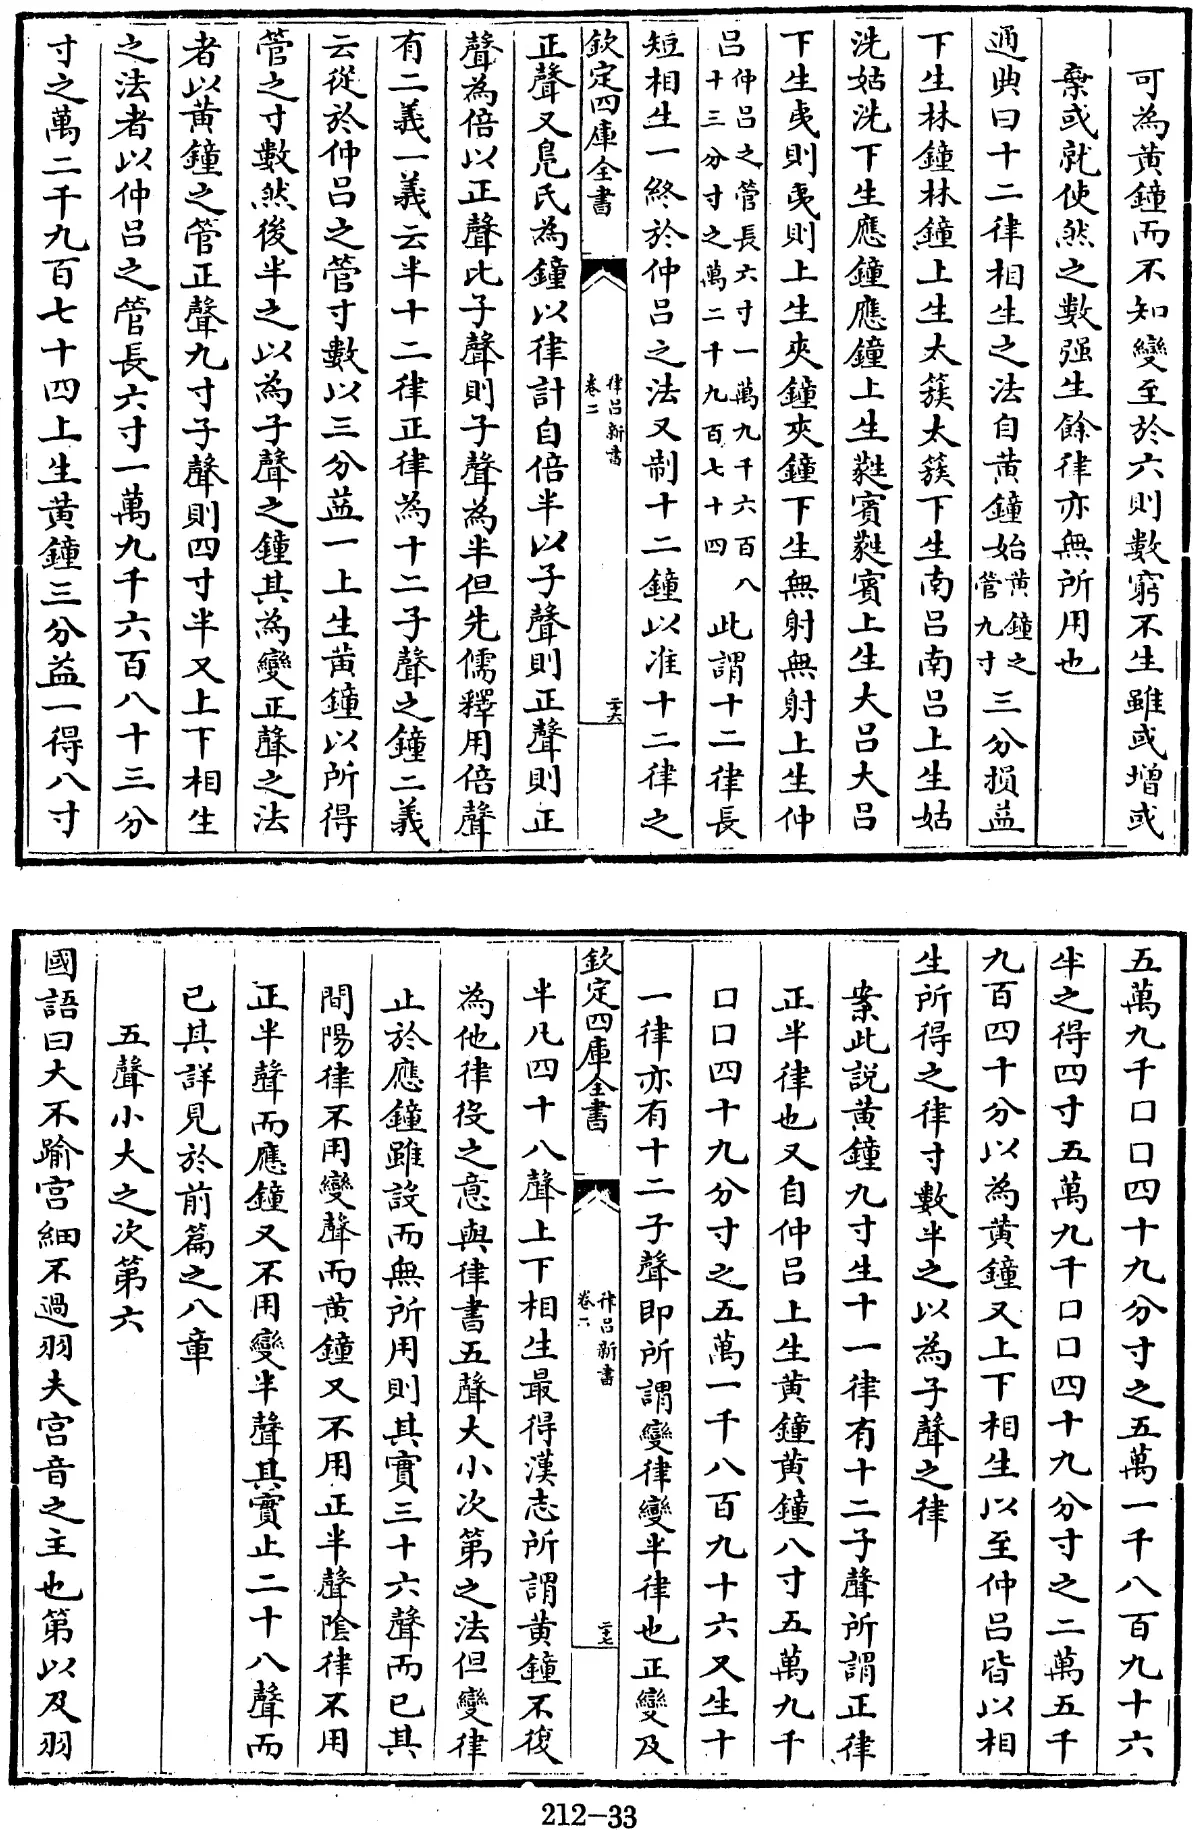 可為黃鐘而不知變至於六則數窮不生雖或增或
棄或就使然之數强生餘律亦無所用也
通典曰十二律相生之法自黃鐘始黃鐘之管九寸三分損益
下生林鐘林鐘上生太簇太簇下生南呂南呂上生姑
洗姑洗下生應鐘應鐘上生蕤賓蕤賓上生大呂大呂
下生夷則夷則上生夾鐘夾鐘下生無射無射上生仲
呂仲呂之管長六寸一萬九千六百八十三分寸之萬二千九百七十四此謂十二律長
短相生一終於仲呂之法又制十二鐘以准十二律之
欽定四庫全書
律呂新書
卷二
二十六
正聲又鳧氏為鐘以律計自倍半以子聲則正聲則正
聲為倍以正聲比子聲則子聲為半但先儒釋用倍聲
有二義一義云半十二律正律為十二子聲之鐘二義
云從於仲呂之管寸數以三分益一上生黃鐘以所得
管之寸數然後半之以為子聲之鐘其為變正聲之法
者以黃鐘之管正聲九寸子聲則四寸半又上下相生
之法者以仲呂之管長六寸一萬九千六百八十三分
寸之萬二千九百七十四上生黃鐘三分益一得八寸
五萬九千口口四十九分寸之五萬一千八百九十六
半之得四寸五萬九千口口四十九分寸之二萬五千
九百四十分以為黃鐘又上下相生以至仲呂皆以相
生所得之律寸數半之以為子聲之律
案此說黃鐘九寸生十一律有十二子聲所謂正律
正半律也又自仲呂上生黃鐘黃鐘八寸五萬九千
口口四十九分寸之五萬一千八百九十六又生十
一律亦有十二子聲即所謂變律變半律也正變及
欽定四庫全書
律呂新書
卷二
二十七
半凡四十八聲上下相生最得漢志所謂黃鐘不復
為他律役之意與律書五聲大小次第之法但變律
止於應鐘雖設而無所用則其實三十六聲而已其
間陽律不用變聲而黃鐘又不用正半聲陰律不用
正半聲而應鐘又不用變半聲其實止二十八聲而
已其詳見於前篇之八章
五聲小大之次第六
國語曰大不踰宮細不過羽夫宮音之主也第以及羽
212-33